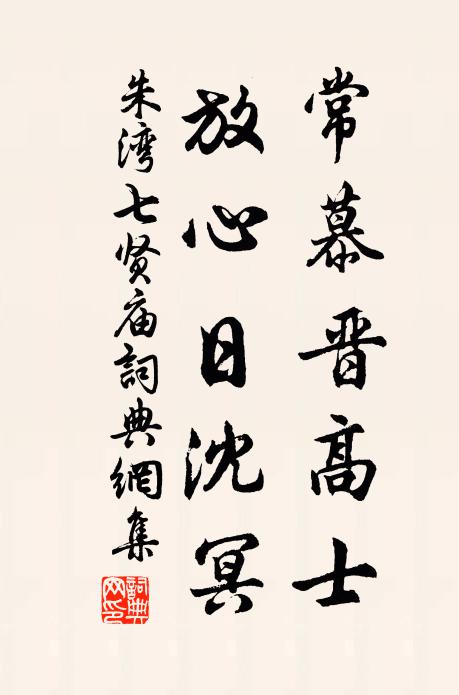 常慕晋高士
放心日沈冥
朱湾七贤庙詞典網集
詞典网印